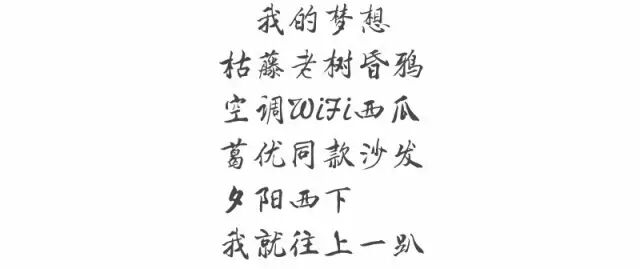 我的梦想
枯藤老树昏鸦
空调WiFi西瓜
葛优同款沙发
夕阳西下
我就往上一趴